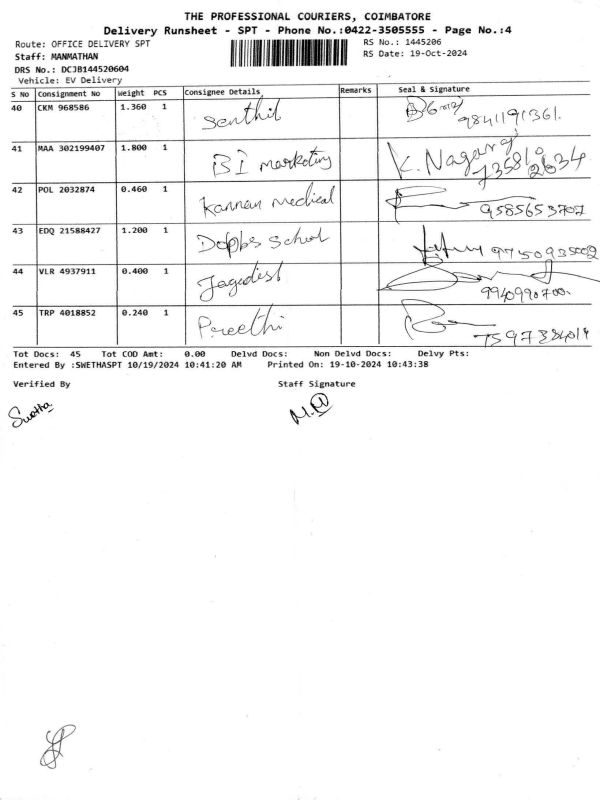 THE PROFESSIONAL COURIERS, COIMBATORE
Delivery Runsheet - SPT - Phone No.:0422-3505555 - Page No.:4
Route: OFFICE DELIVERY SPT
RS No.: 1445206
Staff: MANMATHAN
RS Date: 19-Oct-2024
DRS No.: DCJB144520604
Vehicle: EV Delivery
S No Consignment No Weight PCS Consignee Details Remarks Seal & Signature
40 CKM 968586 1.360 1 Senthil 9841191361.
41 MAA 302199407 1.800 1 BI marketing K. Nagaraj
42 POL 2032874 0.460 1 Kannan medical 9585653707
43 EDQ 21588427 1.200 1 School 9750935002
44 VLR 4937911 0.400 1 Jagadish 9940990700.
45 TRP 4018852 0.240 1 Preethi
Tot Docs: 45 Tot COD Amt: 0.00 Delvd Docs: Non Delvd Docs: Delvy Pts:
Entered By :SWETHASPT 10/19/2024 10:41:20 AM Printed On: 19-10-2024 10:43:38
Verified By Staff Signature
Swetha M.M